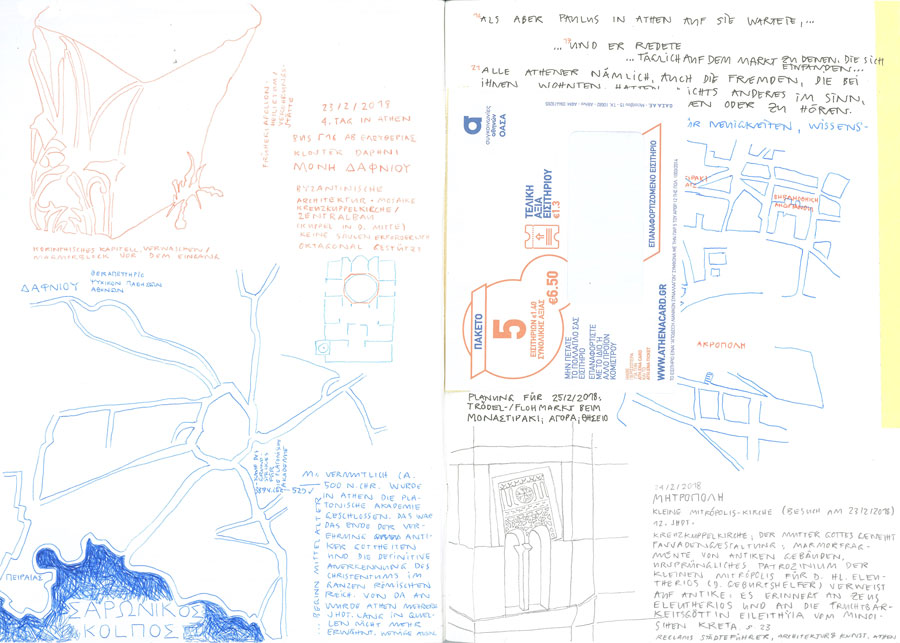 23/2/2018
4. TAG IN ATHEN
BUS Γ16 AB ELEUTHERIAS
KLOSTER DAPHNI
ΜΟΝΗ ΔΑΦΝΙΟΥ
BYZANTINISCHE
ARCHITEKTUR + MOSAIKE
KREUZKUPPELKIRCHE /
ZENTRALBAU
(KUPPEL IN D. MITTE)
KEINE SÄULEN ERFORDERLICH
OKTAGONAL GESTÜTZT
KORINTHISCHES KAPITELL VERWASCHEN /
VOR DEM EINGANG
ΔΑΦΝΙΟΥ
ΘΕΡΑΠΕΥΤΗΡΙΟ
ΨΥΧΙΚΩΝ ΠΑΘΗΣΕΩΝ
ΑΘΗΝΩΝ
PLATONISCHE
AKADEMIE
ΠΕΙΡΑΙΑΣ
ΣΑΡΩΝΙΚΟΣ
ΚΟΛΠΟΣ
... BEGINN MITTELALTER
VERMUTLICH CA.
500 N. CHR. WURDE
IN ATHEN DIE PLA-
TONISCHE AKADEMIE
GESCHLOSSEN. DAS WAR
DAS ENDE DER VER-
EHRUNG ANTI-
KER GOTTHEITEN
UND DIE DEFINITIVE
ANERKENNUNG DES
CHRISTENTUMS IM
GANZEN RÖMISCHEN
REICH. VON DA AN
WURDE ATHEN MEHRERE
JHDT. LANG IN QUEL-
LEN NICHT MEHR
ERWÄHNT.
16 ALS ABER PAULUS IN ATHEN AUF SIE WARTETE, ...
... 18 UND ER REDETE
... TÄGLICH AUF DEM MARKT ZU DENEN, DIE SICH
EINFANDEN ...
21 ALLE ATHENER NÄMLICH, AUCH DIE FREMDEN, DIE BEI
IHNEN WOHNTEN, HATTEN NICHTS ANDERES IM SINN,
ODER ZU HÖREN.
NEUIGKEITEN, WISSENS-
συγκοινωνίες
αθηνών
ΟΑΣΑ
ΤΕΛΙΚΗ
ΑΞΙΑ
ΕΙΣΙΤΗΡΙΟΥ
€1.3
ΕΠΑΝΑΦΟΡΤΙΖΟΜΕΝΟ ΕΙΣΙΤΗΡΙΟ
ΠΑΚΕΤΟ
5
ΕΙΣΙΤΗΡΙΩΝ €1.40
ΣΥΝΟΛΙΚΗΣ ΑΞΙΑΣ
€6.50
ΜΗΝ ΠΕΤΑΤΕ
ΤΟ ΠΟΛΛΑΠΛΟ ΣΑΣ
ΕΙΣΙΤΗΡΙΟ
ΕΠΑΝΑΦΟΡΤΙΣΤΕ
ΜΕ ΤΟ ΙΔΙΟ Ή
ΑΛΛΟ ΠΡΟΪΟΝ
ΚΟΜΙΣΤΡΟΥ
WWW.ATHENACARD.GR
ΑΚΡΟΠΟΛΗ
PLANUNG FÜR 25/2/2018:
TRÖDEL-/FLOHMARKT BEIM
ΜΟΝΑΣΤΙΡΑΚΙ; ΑΓΟΡΑ; ΘΗΣΕΙΟ
24/2/2018
ΜΗΤΡΟΠΟΛΗ
KLEINE MITRÓPOLIS-KIRCHE (BESUCH AM 23/2/2018)
12. JHDT.
KREUZKUPPELKIRCHE, DER MUTTER GOTTES GEWEIHT
FASSADENGESTALTUNG: MARMORFRAG-
MENTE VON ANTIKEN GEBÄUDEN,
URSPRÜNGLICHES PATROZINIUM DER
KLEINEN MITRÓPOLIS FÜR D. HL. ELEU-
THERIOS (D. GEBURTSHELFER) VERWEIST
AUF ANTIKE: ES ERINNERT AN ZEUS
ELEUTHERIOS UND AN DIE FRUCHTBAR-
KEITSGÖTTIN EILEITHYIA VOM MINOI-
SCHEN KRETA S. 23
RECLAMS STÄDTEFÜHRER, ARCHITEKTUR & KUNST, ATHEN